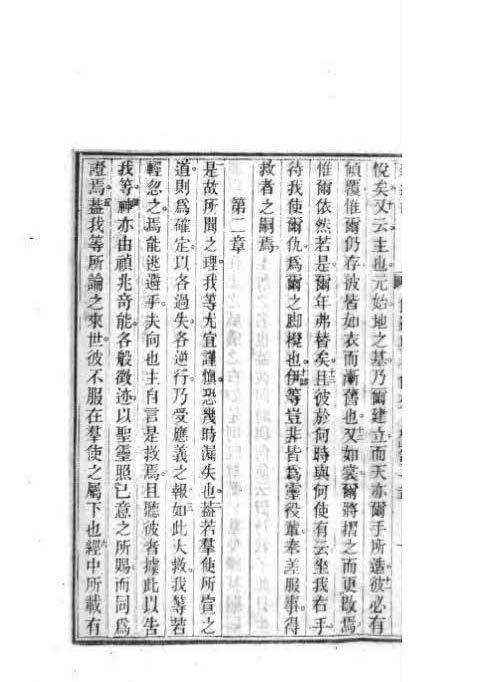 悅矣又云主也元始地之基乃爾建立而天亦爾手所造彼必有
傾覆惟爾仍存彼皆如衣而漸舊也又如裳爾將摺之而更改焉
惟爾依然若是爾年弗替矣且彼於何時與何使有云坐我右手
待我使爾仇為爾之脚櫈也伊等豈非皆為靈役輩奉差服事得
救者之嗣焉
第二章
是故所聞之理我等尤宜謹慎恐幾時漏失也蓋若羣使所宣之
道則為確定以各過失各逆行乃受應義之報如此大救我等若
輕忽之焉能逃避乎夫向也主自言是救焉且聽彼者據此以告
我等神亦由禎兆奇能各般徵迹以聖靈照己意之所賜而同為
證焉蓋我等所論之來世彼不服在羣使之屬下也經中所載有